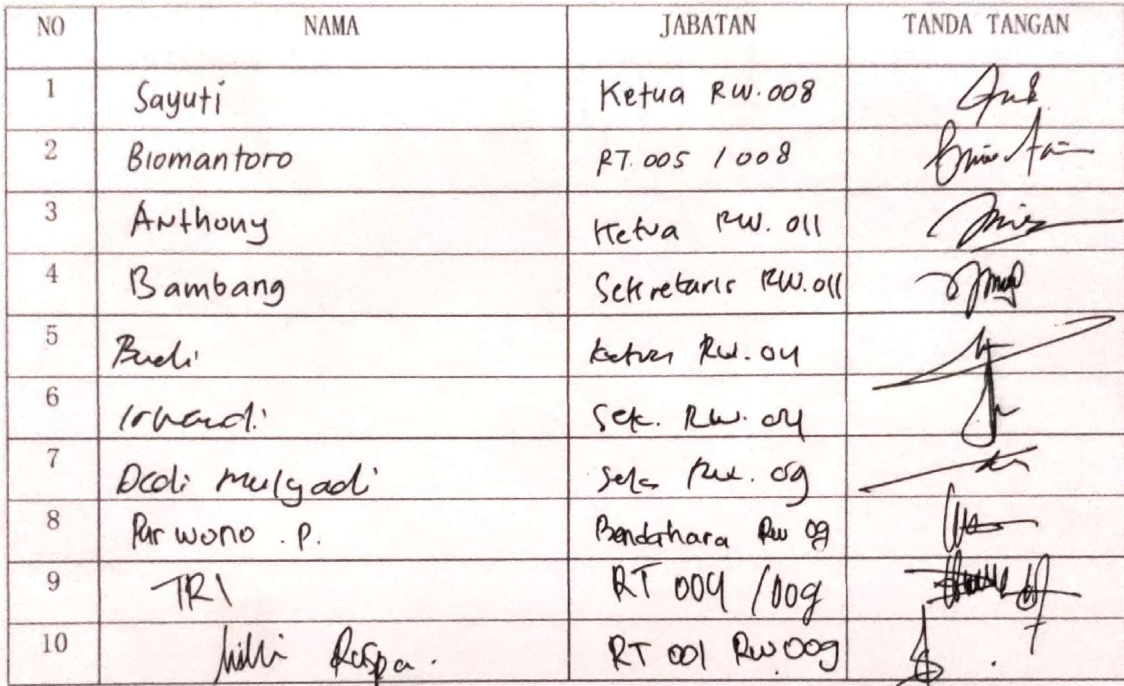 NO NAMA JABATAN TANDA TANGAN
1 Sayuti Ketua RW.008
2 Biomantoro RT.005 / 008
3 Anthony Ketua RW. 011
4 Bambang Sekretaris RW.011
5 Budi Ketua RW. 04
6 Sek. RW. 04
7 Dedi Mulyadi Sek RW. 09
8 Purwono . P. Bendahara RW 09
9 TRI RT 004 / 009
10 RT 001 RW 009